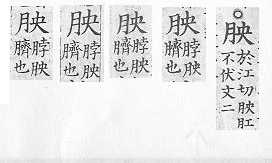 胦
脖胦
臍也
胦
脖胦
臍也
胦
脖胦
臍也
胦
脖胦
臍也
胦
於江切胦肛
不伏文二